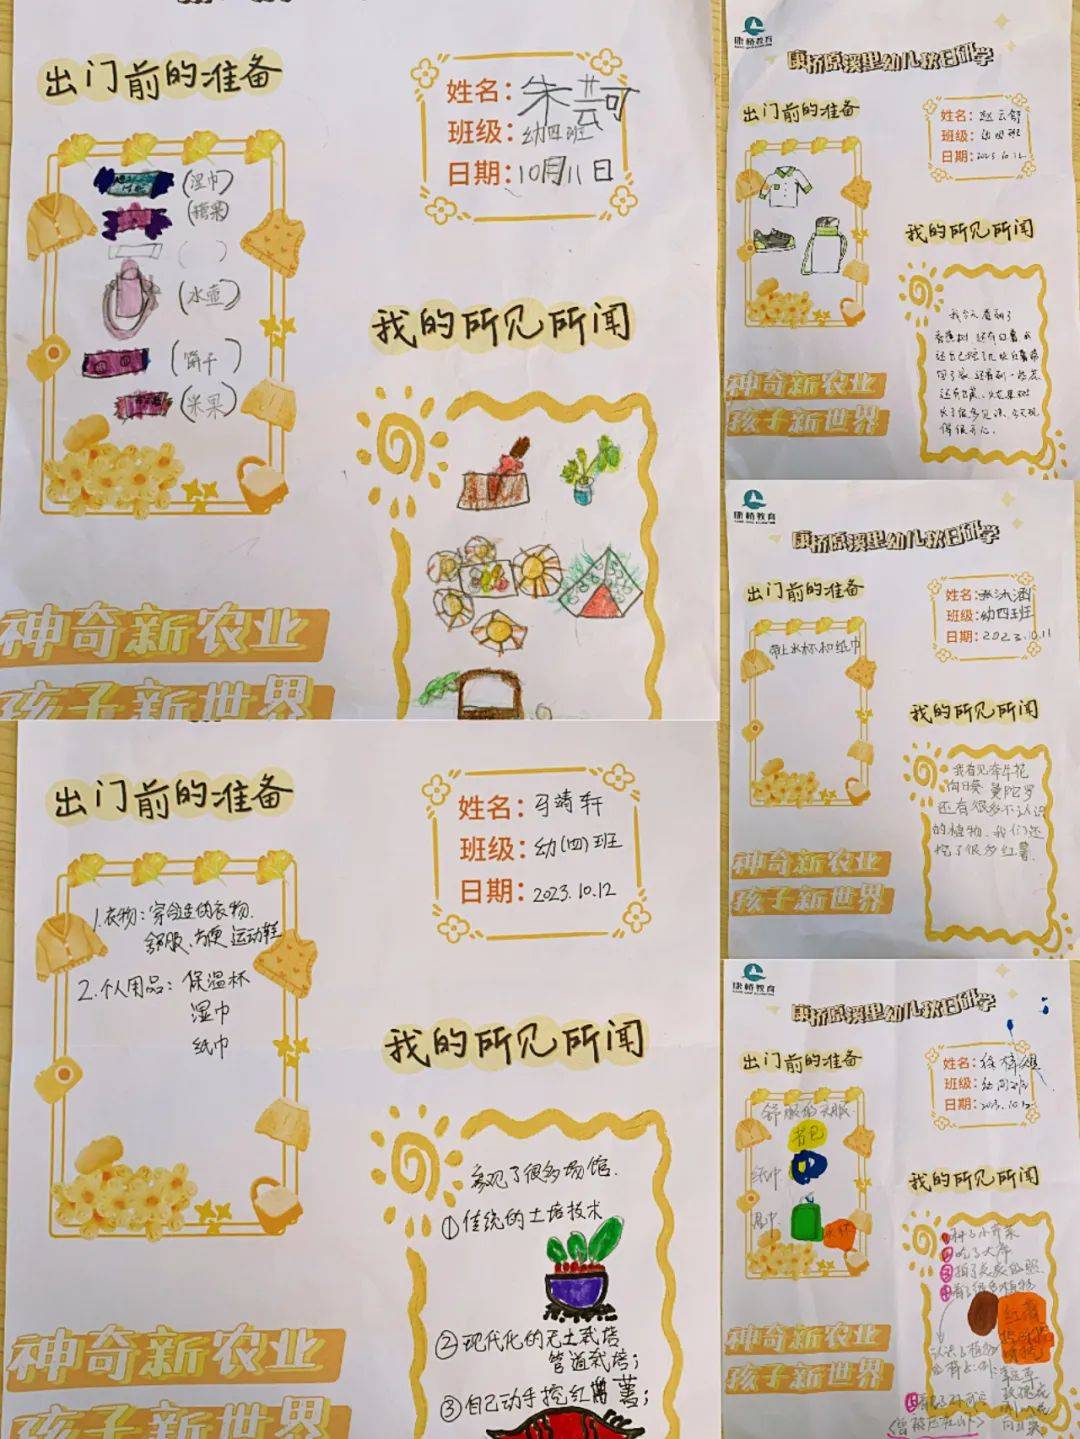 出门前的准备
姓名：朱芸可
班级：幼四班
日期：10月11日
(湿巾)
(糖果)
( )
(水壶)
(饼干)
(米果)
我的所见所闻
神奇新农业
孩子新世界
康桥教育
康桥原溪里幼儿秋日研学
出门前的准备
姓名：赵云舒
班级：幼四班
日期：2023.10.12
我的所见所闻
我今天看到了
还看到一些花
得很开心.
神奇新农业
孩子新世界
康桥教育
康桥原溪里幼儿秋日研学
出门前的准备
姓名：
班级：幼四班
日期：2023.10.11
带上水杯和纸巾
我的所见所闻
我看见牵牛花
向日葵 曼陀罗
还有很多不认识
的植物、我们还
挖了很多红薯.
神奇新农业
孩子新世界
出门前的准备
姓名：马靖轩
班级：幼(四)班
日期：2023.10.12
1.衣物：穿合适的衣物.
舒服、方便 运动鞋
2.个人用品：保温杯
湿巾
纸巾
我的所见所闻
参观了很多场馆.
①传统的土培技术
②现代化的无土栽培
管道栽培；
③自己动手挖红薯；
神奇新农业
孩子新世界
康桥教育
康桥原溪里幼儿秋日研学
出门前的准备
姓名：徐梓
班级：幼四班
日期：2023.10.12
舒服的衣服
书包
纸巾
湿巾
水杯
我的所见所闻
红薯
认识了植物
玫瑰花
向日葵
神奇新农业
孩子新世界